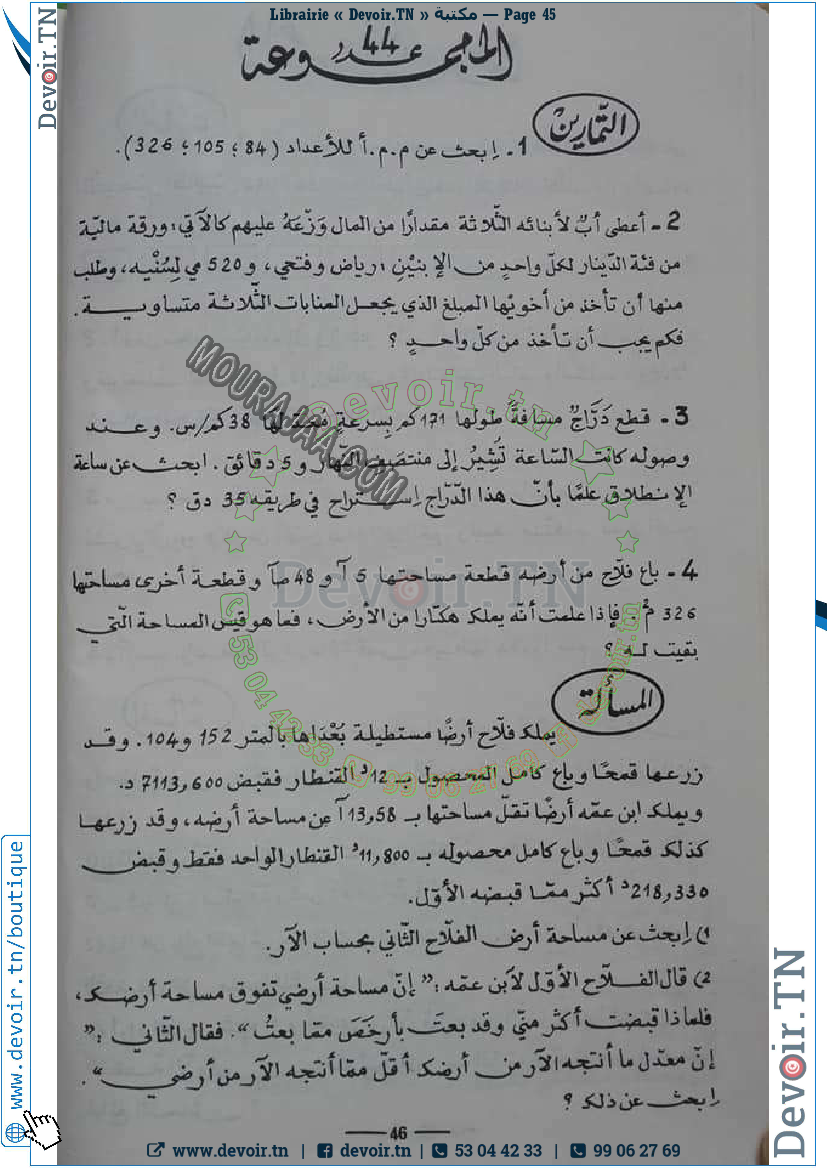 Librairie « Devoir.TN » مكتبة — Page 45
Devoir.TN
المجموعة عدد 44
التمارين
1 - إبحث عن م.م.أ للأعداد (84 ؛ 105 ؛ 326).
2 - أعطى أبٌ لأبنائه الثّلاثة مقدارًا من المال وَزَّعَهُ عليهم كالآتي: ورقة ماليّة
من فئة الدّينار لكلّ واحدٍ من الإبنيْنِ: رياض وفتحي، و 520 مي لِسُنْيه، وطلب
منها أن تأخذ من أخويْها المبلغ الذي يجعل المنابات الثّلاثة متساويــة.
فكم يجب أن تأخذ من كلّ واحدٍ ؟
3 - قطع دَرَّاجٌ مسافةً طولها 171 كم بِسرعةٍ مُعدّلها 38 كم/س. وعند
وصوله كانت السّاعة تُشِيرُ إلى منتصف النّهار و 5 دقائق. ابحث عن ساعة
الإنطلاق علمًا بأنّ هذا الدّراج إستراح في طريقه 35 دق ؟
4 - باع فلّاح من أرضه قطعة مساحتها 5 آ و 48 صآ وقطعة أخرى مساحتها
326 م². فإذا علمت أنّه يملك هكتارا من الأرض، فما هو قيس المساحة الّتي
بقيت لـه ؟
المسألة
يملك فلّاح أرضًا مستطيلة بُعْدَاها بالمتر 152 و 104. وقـد
زرعـها قمحًـا وباع كامل المحصول بـ 12د القنطار فقبض 7113,600 د.
ويملك ابن عمّه أرضًا تقلّ مساحتها بـ 13,58آ عن مساحة أرضه، وقد زرعهـا
كذلك قمحًـا وباع كامل محصوله بـ 11,800د القنطار الواحد فقط وقبض
218,330د أكثر ممّا قبضه الأوّل.
1) إبحث عن مساحة أرض الفلّاح الثّاني بحساب الآر.
2) قال الفـلّاح الأوّل لابن عمّه: " إنّ مساحة أرضي تفوق مساحة أرضك،
فلماذا قبضت أكثر منّي وقد بعتَ بأرخَصَ ممّا بعتُ ". فقال الثّاني: "
إنّ معدّل ما أنتجه الآر من أرضك أقلّ ممّا أنتجه الآر من أرضي ".
إبحث عن ذلك ؟
46
MOURAJAA.COM
Devoir.tn
Devoir.TN
53 04 42 33
99 06 27 69
Devoir.tn
www.devoir.tn/boutique
Devoir.TN
www.devoir.tn | devoir.tn | 53 04 42 33 | 99 06 27 69